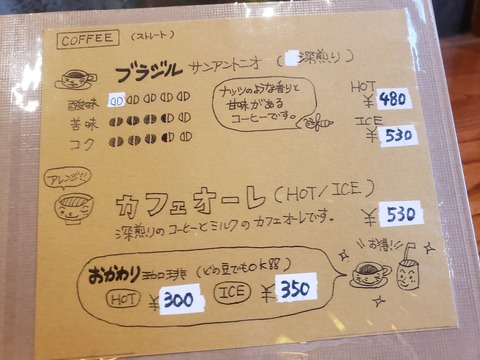 COFFEE (ストレート)
ブラジル サンアントニオ (深煎り)
酸味
苦味
コク
ナッツのような香りと
甘味がある
コーヒーです。
HOT
¥480
ICE
¥530
アレンジ!!
カフェオーレ (HOT/ICE)
¥530
深煎りのコーヒーとミルクのカフェオーレです。
お得!!
おかわり珈琲 (どの豆でもOK)
HOT ¥300 ICE ¥350